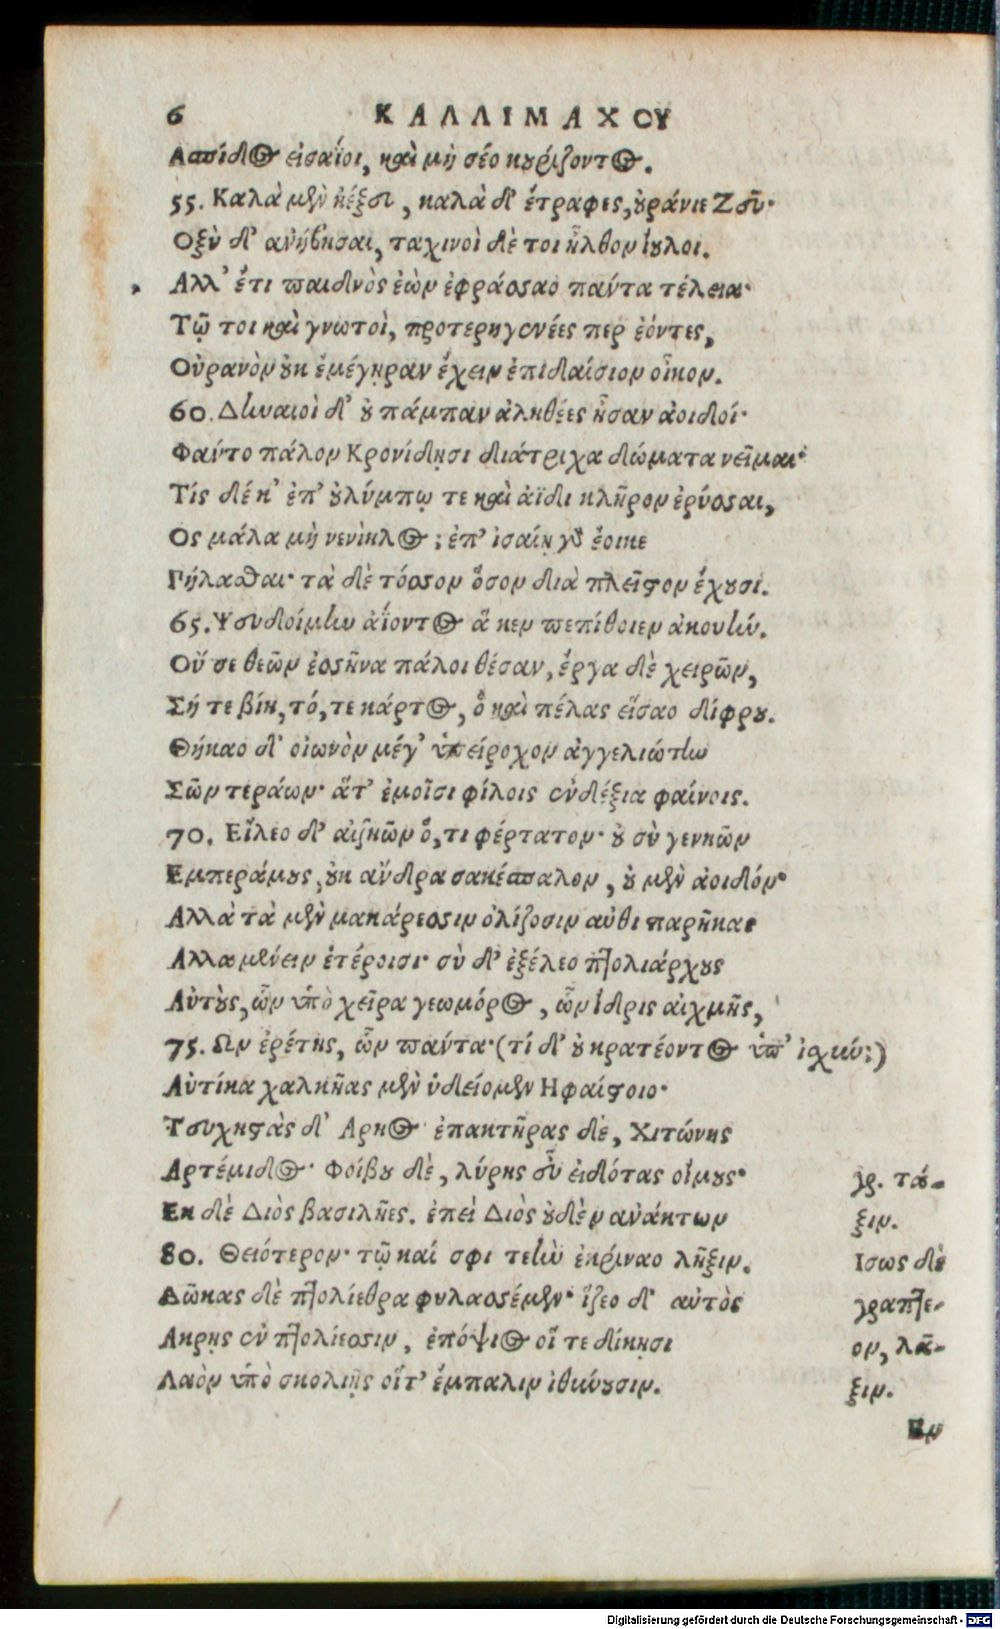 6 ΚΑΛΛΙΜΑΧΟΥ
Ασπίδος εἰσαΐοι, καὶ μὴ σέο κουρίζοντος.
55. Καλὰ μὲν ἠέξευ, καλὰ δ' ἔτραφες, οὐράνιε Ζεῦ·
Οξὺ δ' ἀνήβησαι, ταχινοὶ δὲ τοι ἦλθον ἴουλοι.
Αλλ' ἔτι παιδνὸς ἐὼν ἐφράσσαο πάντα τέλεια·
Τῷ τοι καὶ γνωτοὶ, προτερηγενέες περ ἐόντες,
Οὐρανὸν οὐκ ἐμέγηραν ἔχειν ἐπιδαίσιον οἶκον.
60. Δηναιοὶ δ' οὐ πάμπαν ἀληθέες ἦσαν ἀοιδοί·
Φαύτο πάλον Κρονίδῃσι διάτριχα δώματα νεῖμαι·
Τίς δέ κ' ἐπ' οὐλύμπῳ τε καὶ ἀΐδι κλῆρον ἐρύσσαι,
Ος μάλα μὴ νενίηλος; ἐπ' ἰσαίῃ γὰρ ἔοικε
Πήλασθαι· τὰ δὲ τόσσον ὅσον διὰ πλεῖστον ἔχουσι.
65. Ψευδοίμην ἀΐοντος ἅ κεν πεπίθοιεν ἀκουήν.
Οὔ σε θεῶν ἐσσῆνα πάλοι θέσαν, ἔργα δὲ χειρῶν,
Σή τε βίη, τό, τε κάρτος, ὃ καὶ πέλας εἵσαο δίφρου.
Θήκαο δ' οἰωνὸν μέγ' ὑπείροχον ἀγγελιώτην
Σῶν τεράων· ἅτ' ἐμοῖσι φίλοις ἐνδέξια φαίνοις.
70. Εἵλεο δ' αἰζηῶν ὅ,τι φέρτατον· οὐ σὺ γενηῶν
Εμπεράμους, οὐκ ἄνδρα σακέσπαλον, οὐ μὲν ἀοιδόν·
Αλλὰ τὰ μὲν μακάρεσσιν ὀλίζοσιν αὖθι παρῆκας
Αλλα μένειν ἑτέροισι· σὺ δ' ἐξέλεο πτολιάρχους
Αὐτοὺς, ὧν ὑπὸ χεῖρα γεωμόρος, ὧν ἴδρις αἰχμῆς,
75. Ων ἐρέτης, ὧν πάντα· (τί δ' οὐ κρατέοντος ὑπ' ἰσχύν;)
Αὐτίκα χαλκῆας μὲν ὑδείομεν Ηφαίστοιο·
Τευχηστὰς δ' Αρηος· ἐπακτῆρας δὲ, Χιτώνης
Αρτέμιδος· Φοίβου δὲ, λύρης εὖ εἰδότας οἴμους·
Εκ δὲ Διὸς βασιλῆες. ἐπεὶ Διὸς οὐδὲν ἀνάκτων
80. Θειότερον· τῷ καί σφι τεὴν ἐκρίναο λῆξιν.
Δῶκας δὲ πτολίεθρα φυλασσέμεν· ἵζεο δ' αὐτὸς
Ακρῃς ἐν πτολίεσσιν, ἐπόψιος οἵ τε δίκῃσι
Λαὸν ὑπὸ σκολιῇς οἵτ' ἔμπαλιν ἰθύνουσιν.
γρ. τά-
ξιν.
Ισως δὲ
γραπτέ-
ον, λᾶ-
ξιν.
Εν
Digitalisierung gefördert durch die Deutsche Forschungsgemeinschaft - DFG